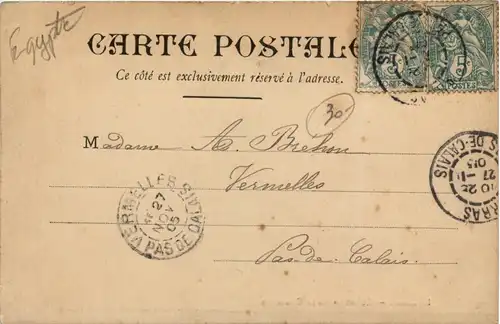 Egypte
CARTE POSTALE
Ce côté est exclusivement réservé à l'adresse.
30
5
5
POSTES
Madame Ad. Brehon
Vermelles
Pas-de-Calais.
VERMELLES
27
NOV
05
PAS DE CALAIS
ARRAS
10 25
27 -11
05
PAS-DE-CALAIS